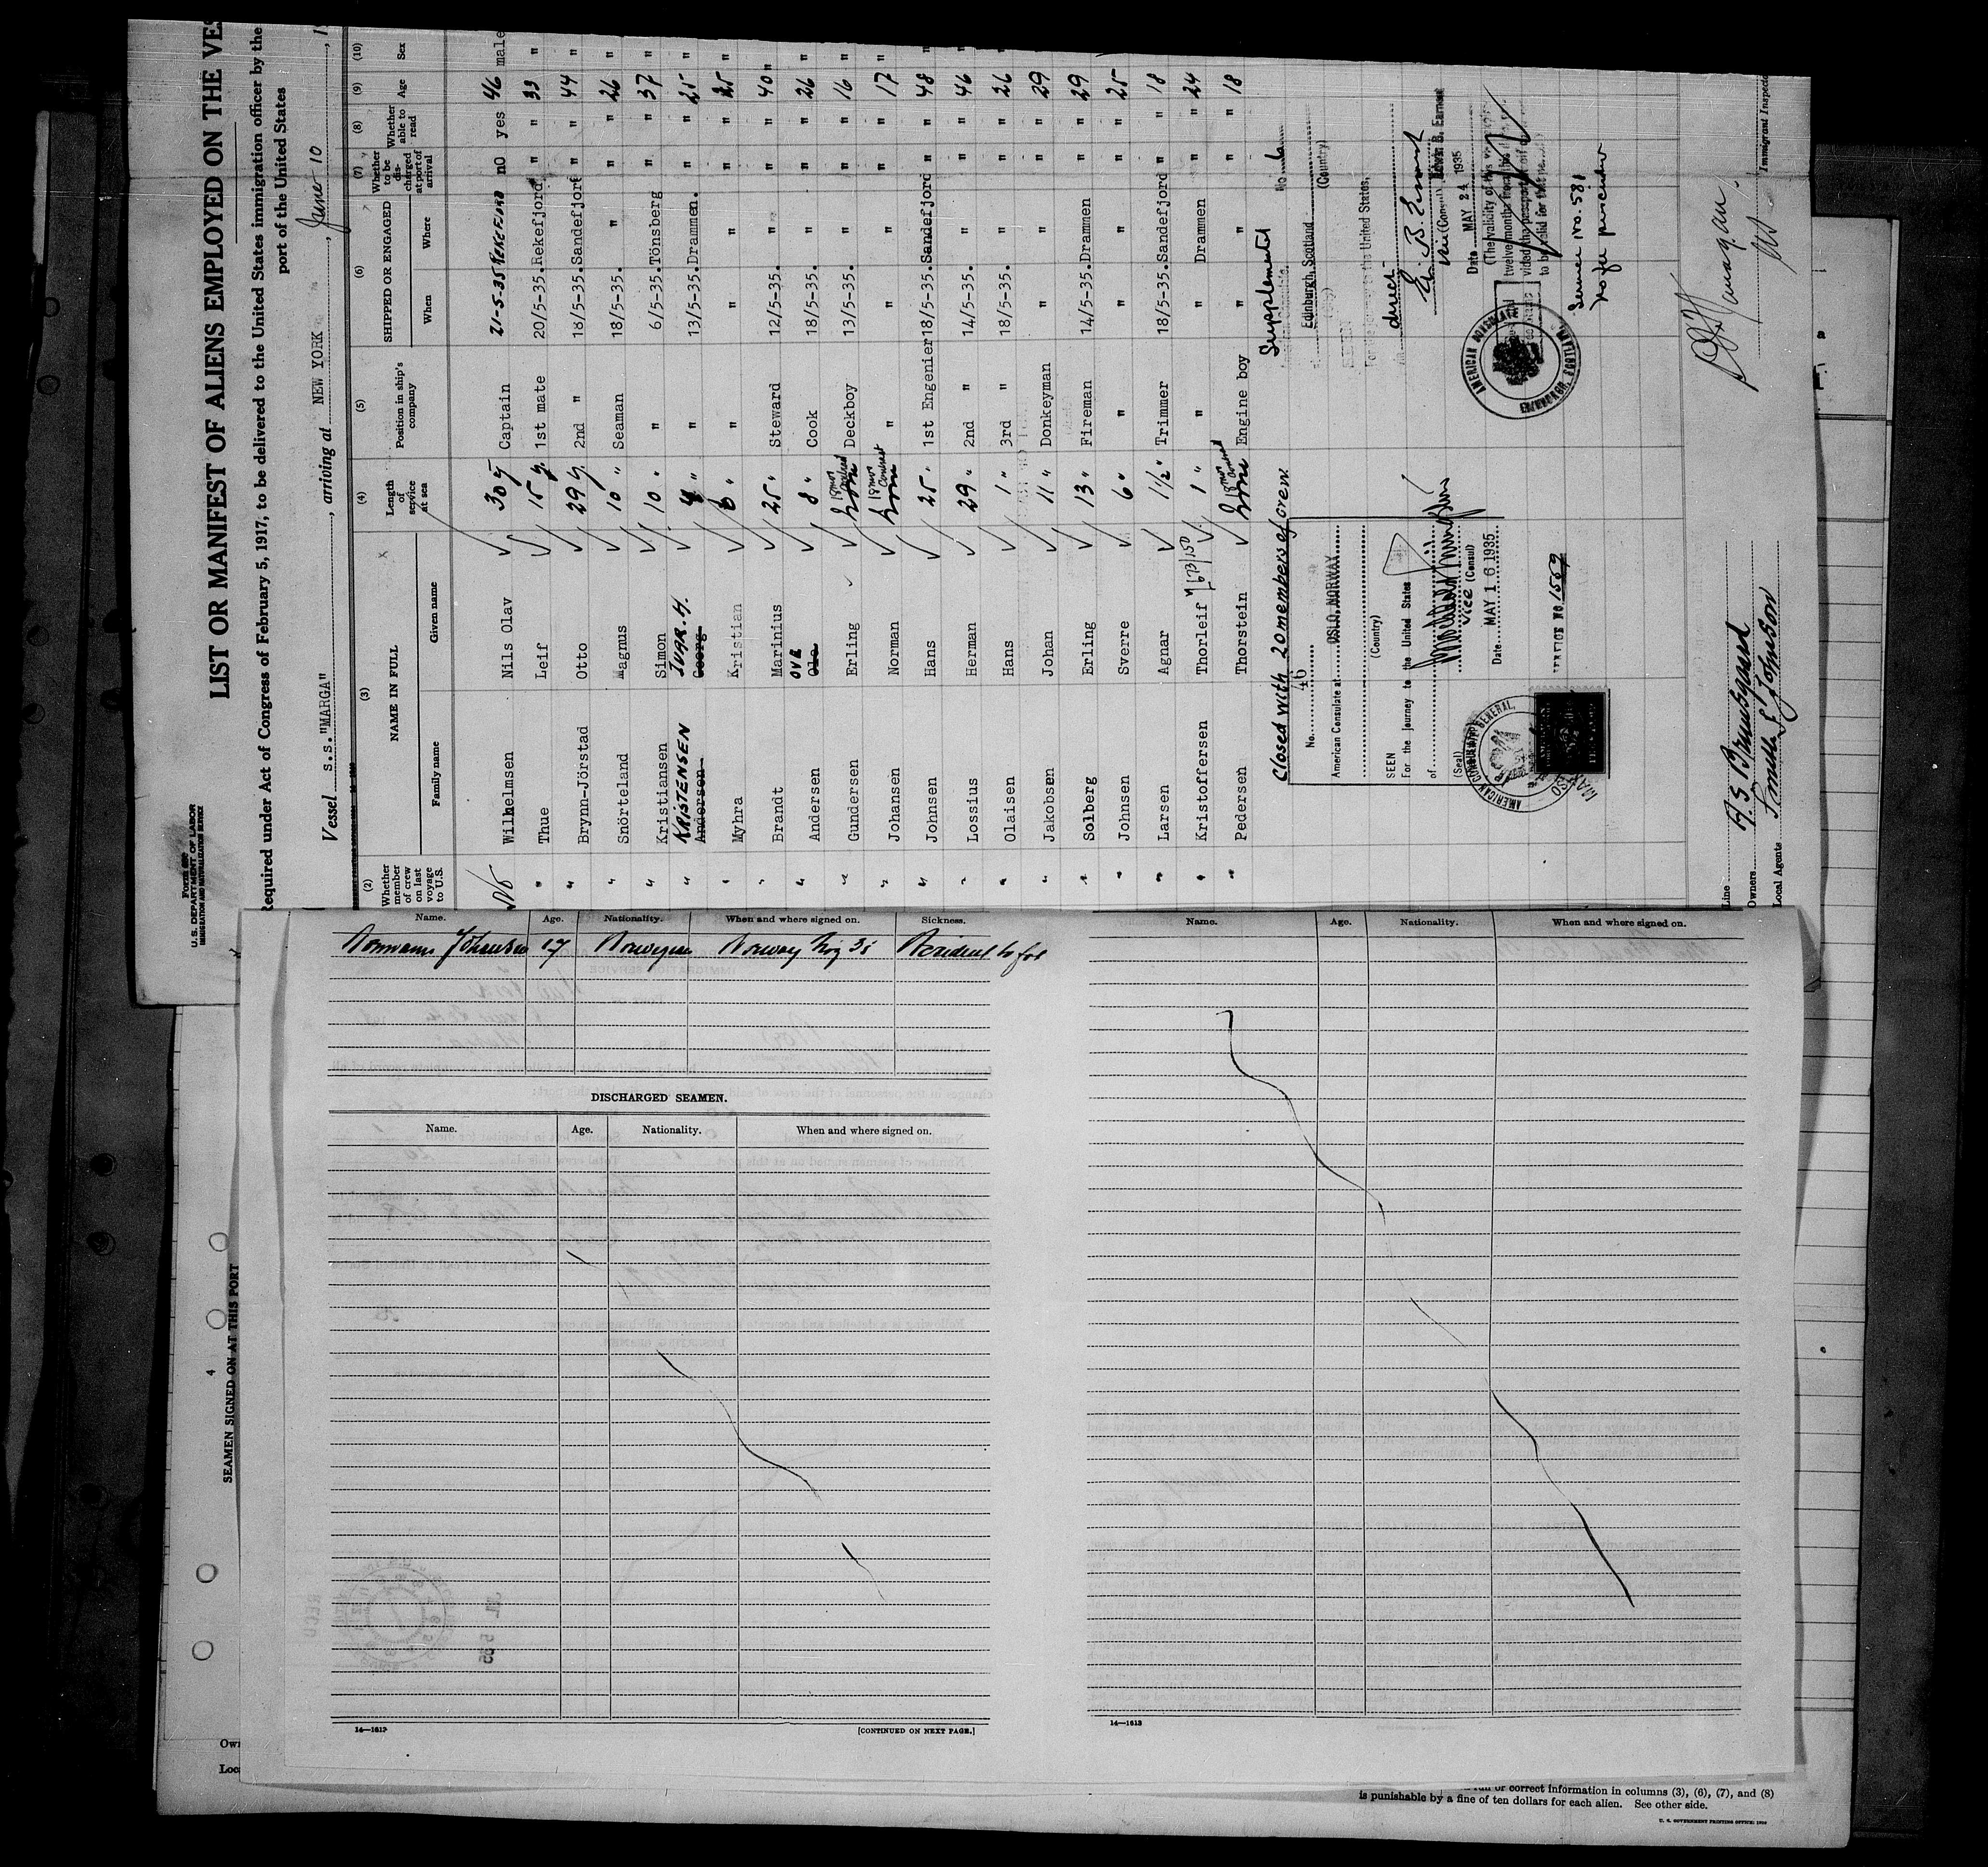 Form 680
U. S. DEPARTMENT OF LABOR
IMMIGRATION AND NATURALIZATION SERVICE
LIST OR MANIFEST OF ALIENS EMPLOYED ON THE VES
Required under Act of Congress of February 5, 1917, to be delivered to the United States immigration officer by the
port of the United States
Vessel s.s."MARGA" , arriving at NEW YORK , June 10 , 1
(2) (3) (4) (5) (6) (7) (8) (9) (10)
Whether member of crew on last voyage to U.S. NAME IN FULL Length of service at sea Position in ship's company SHIPPED OR ENGAGED Whether to be discharged at port of arrival Whether able to read Age Sex
Family name Given name When Where
Wilhelmsen Nils Olav 30 y Captain 21-5-35 REKEFJORD no yes 46 male
" Thue Leif 15 y. 1st mate 20/5-35. Rekefjord " " 33 "
" Brynn-Jörstad Otto 29 y. 2nd " 18/5-35. Sandefjord " " 44 "
" Snörteland Magnus 10 " Seaman 18/5-35. " " " 26 "
" Kristiansen Simon 10 " " 6/5-35. Tönsberg " " 37 "
" KRISTENSEN IVAR. H.
Andersen Georg 4 " " 13/5-35. Drammen. " " 25 "
" Myhra Kristian 6 " " " " " " 25 "
" Brandt Marinius 25 " Steward 12/5-35. " " " 40 "
OVE
" Andersen Ole 8 " Cook 18/5-35. " " " 26 "
" Gundersen Erling 18 mos Deckboy 13/5-35. " " " 16 "
" Johansen Norman 18 mos " " " " " 17 "
" Johnsen Hans 25 " 1st Engenier 18/5-35. Sandefjord " " 48 "
" Lossius Herman 29 " 2nd " 14/5-35. " " " 46 "
" Olaisen Hans 1 " 3rd " 18/5-35. " " " 26 "
" Jakobsen Johan 11 " Donkeyman " " " " 29
" Solberg Erling 13 " Fireman 14/5-35. Drammen " " 29
" Johnsen Sverre 6 " " " " " " 25
" Larsen Agnar 1½ " Trimmer 18/5-35. Sandefjord " " 18
" Kristoffersen Thorleif 1 " " " Drammen " " 24
" Pedersen Thorstein 18 mos Engine boy " " " " 18
Closed with 20 members of crew.
No. 46
American Consulate at OSLO, NORWAY
(Country)
SEEN
For the journey to the United States
of
(Seal)
Vice (Consul)
Date MAY 16 1935
SERVICE NO. 1569
AMERICAN CONSULATE GENERAL.
Supplemental No 6
Edinburgh, Scotland
(Country)
For the journey to the United States,
direct
Edwin B. Earnest
Date MAY 24 1935
(The validity of this
twelve months from this
vided the passport
to be valid for that
Service No. 581
No fee prescribed
AMERICAN CONSULATE
EDINBURGH, SCOTLAND.
Immigrant Inspector
Line
Owners
Local Agents
Name. Age. Nationality. When and where signed on. Sickness.
17 Norwegian Norway 35 Accident to foot
DISCHARGED SEAMEN.
Name. Age. Nationality. When and where signed on.
14—1613 [CONTINUED ON NEXT PAGE.]
Name. Age. Nationality. When and where signed on.
14—1613
4
SEAMEN SIGNED ON AT THIS PORT
Own
Loc
full or correct information in columns (3), (6), (7), and (8)
is punishable by a fine of ten dollars for each alien. See other side.
U. S. GOVERNMENT PRINTING OFFICE: